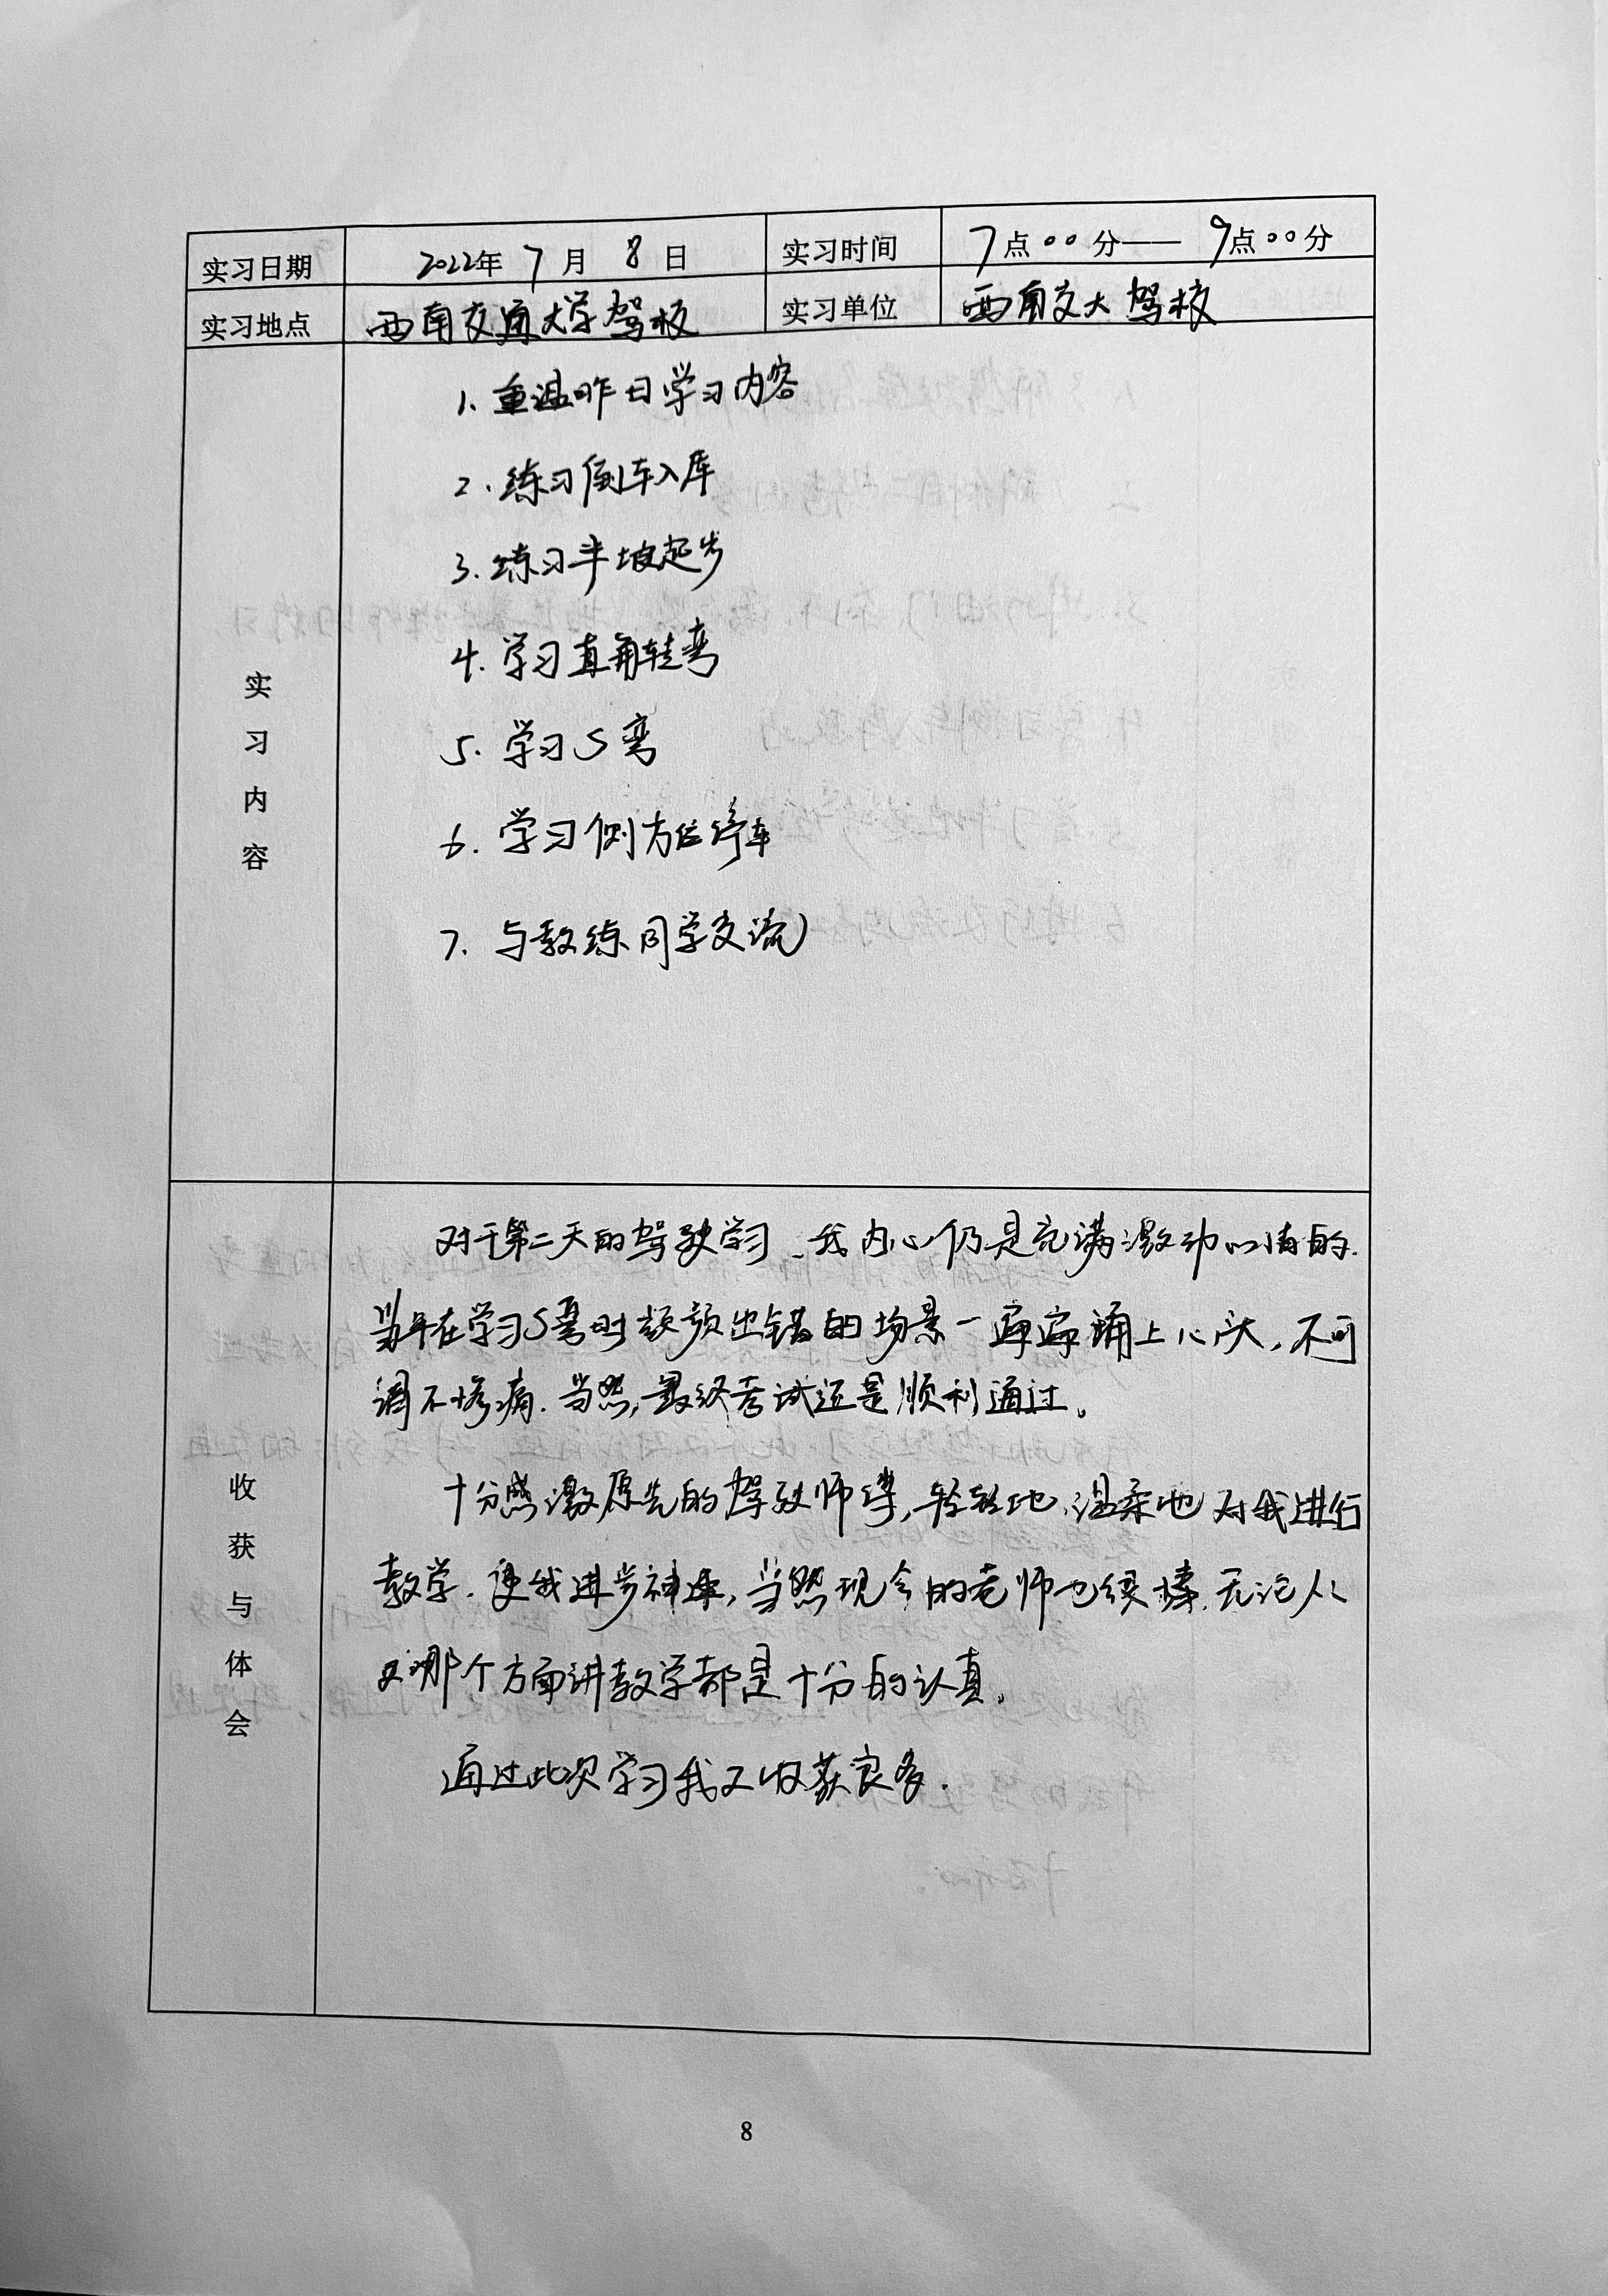 实习日期 2022年 7 月 8 日 实习时间 7点00分——9点00分
实习地点 西南交通大学驾校 实习单位 西南交大驾校
实习内容
1. 重温昨日学习内容
2. 练习倒车入库
3. 练习半坡起步
4. 学习直角转弯
5. 学习S弯
6. 学习侧方位停车
7. 与教练同学交流
收获与体会
对于第二天的驾驶学习、我内心仍是充满激动心情的.
当年在学习S弯时频频出错的场景一遍遍涌上心头,不可
谓不惨痛.当然,最终考试还是顺利通过。
十分感激原先的驾驶师傅,轻轻地、温柔地对我进行
教学.使我进步神速,当然现今的老师也很棒.无论从
哪个方面讲教学都是十分的认真。
通过此次学习我又收获良多.
8